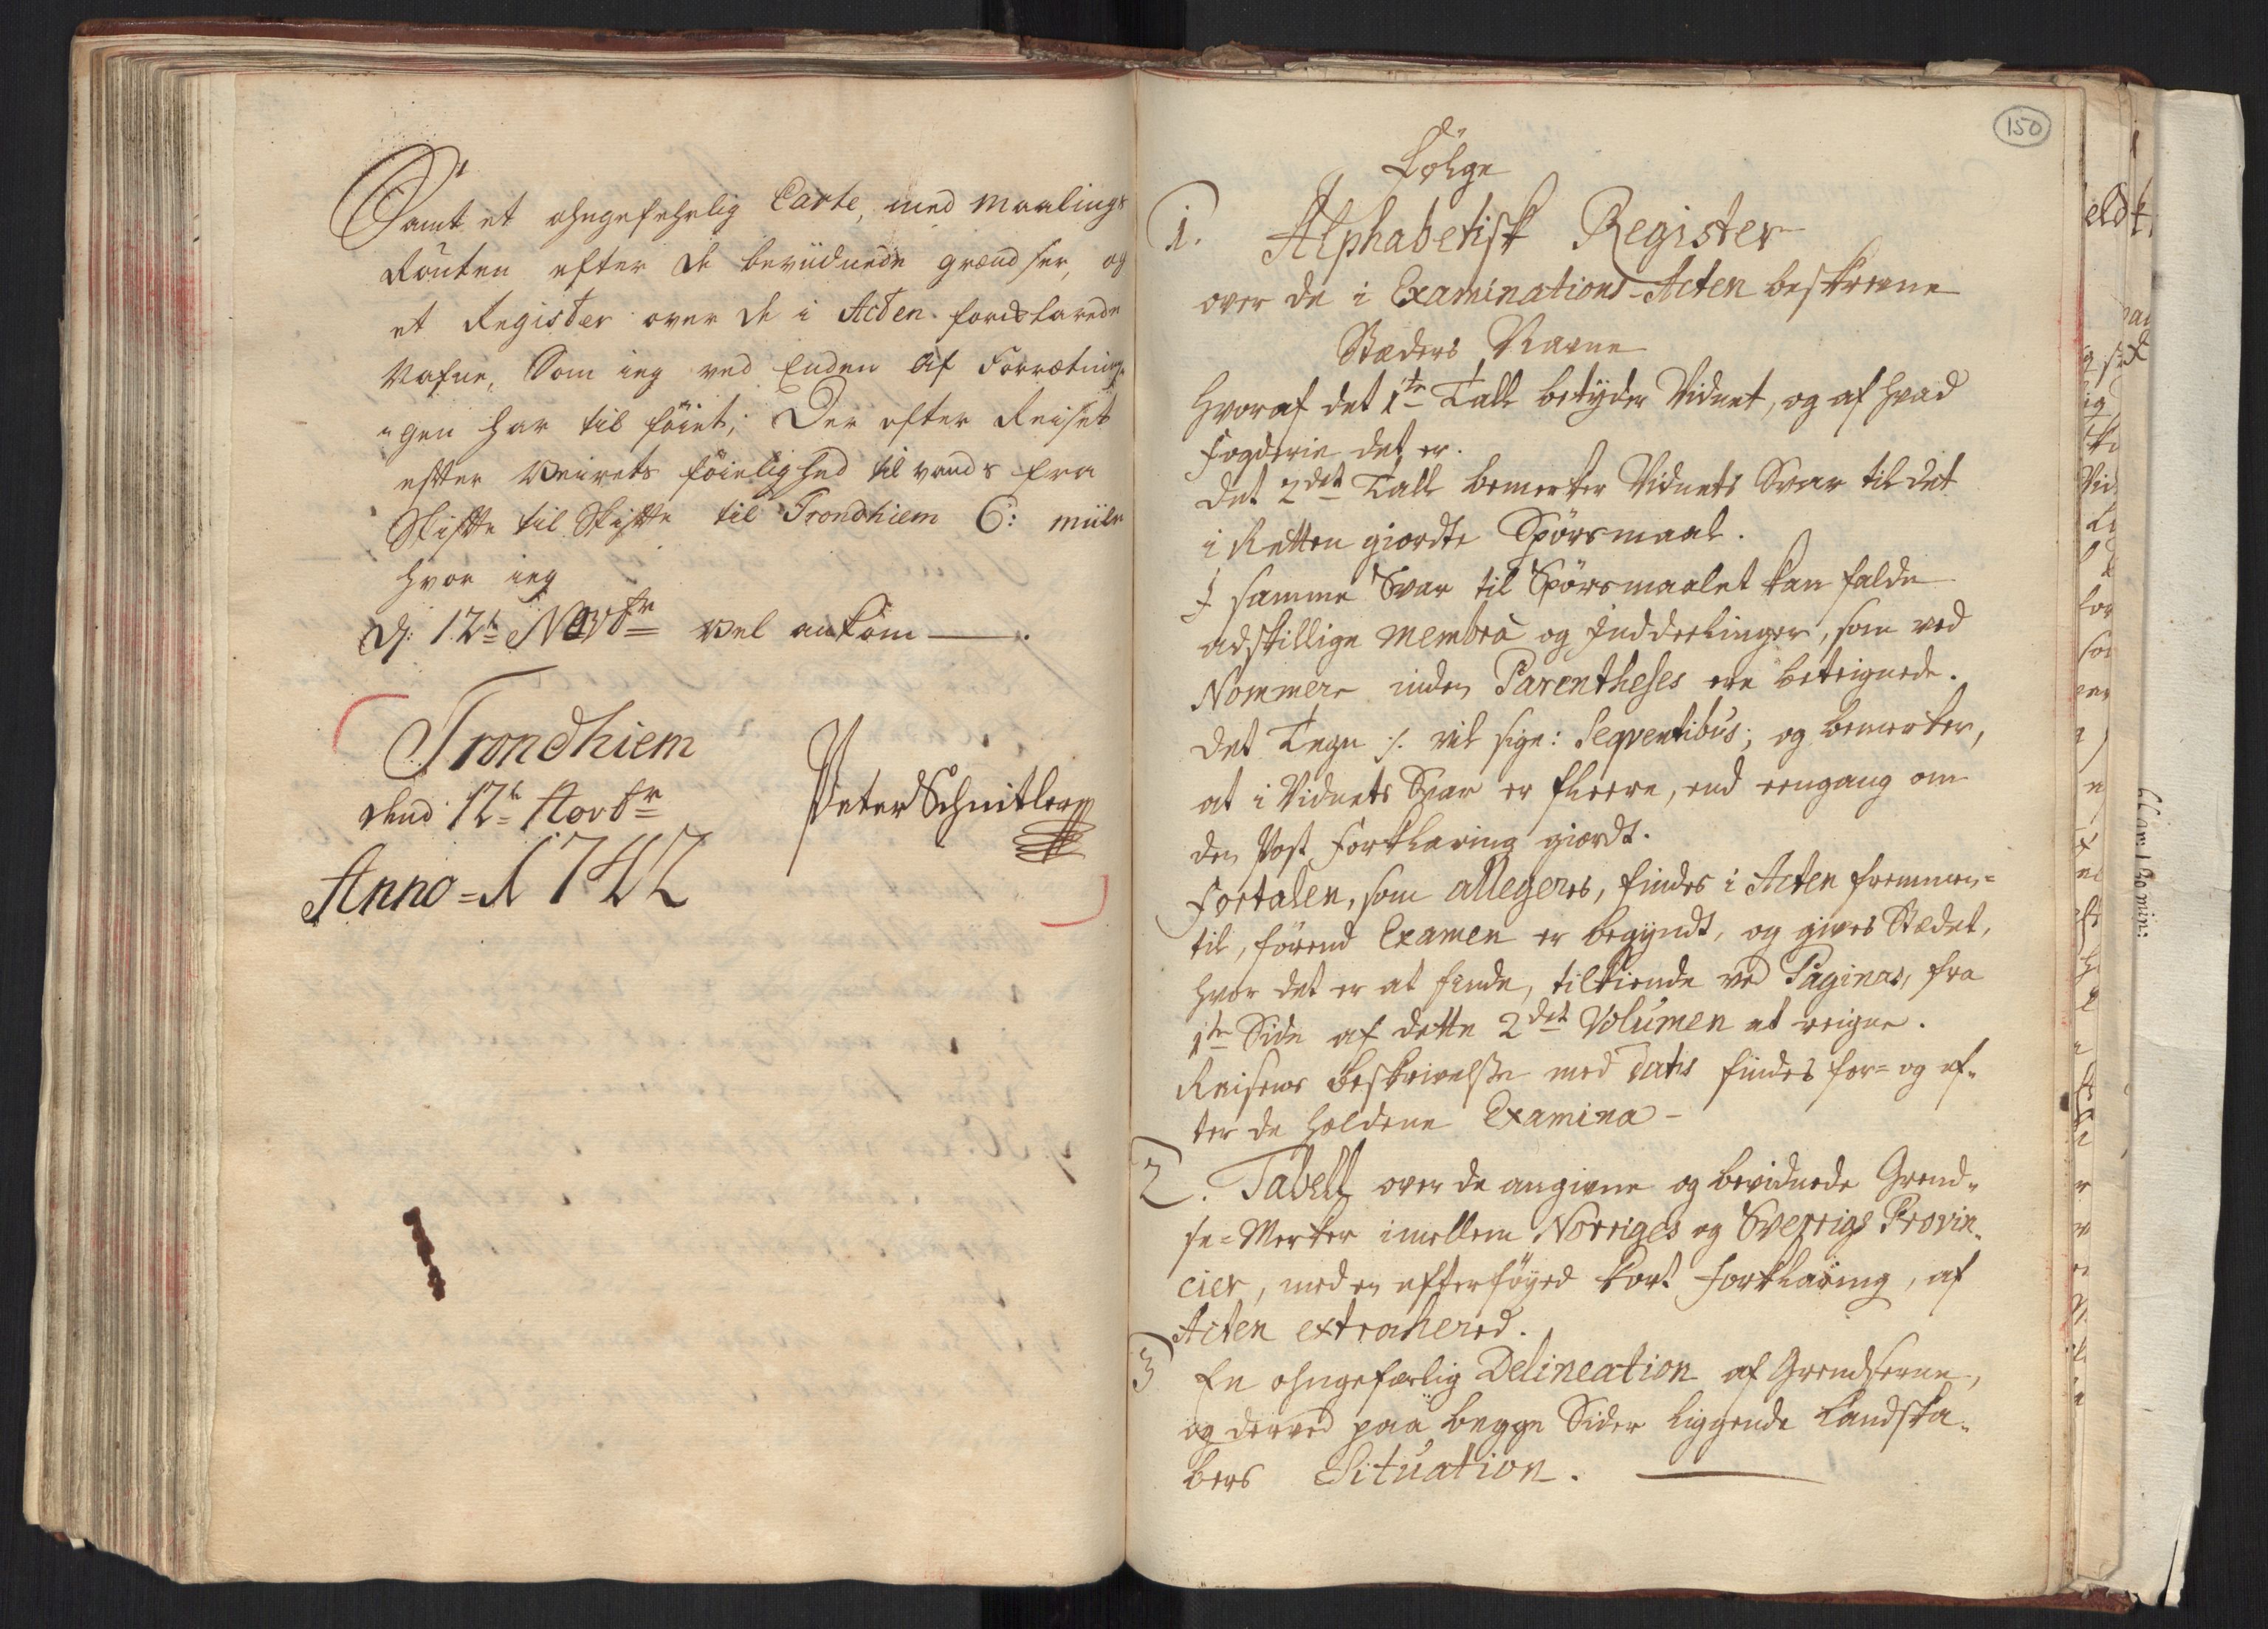 Samt et ohngefehrlig Carte, med Maalings
Routen efter de beviidnede grændser, og
et Register over de i Acten forklarede
Nafne, Som ieg ved Enden af Forrætnin-
gen har til føiet; Der efter Reiset
efter Veirets føielighed til vands fra
Skifte til Skifte til Trondhiem 6: miile
hvor ieg
d: 12te Novbr vel ankom —.
Trondhiem
dend 12te Novbr
Peter Schnitler
Anno = 1742
150
Følge
1. Alphabetisk Register
over de i Examinations-Acten beskrevne
Stæders Navne
Hvoraf det 1te Tall betyder Vidnet, og af hvad
Fogderie det er.
Det 2det Tall bemerker Vidnets Svar til det
i Retten giordte Spørsmaal.
I samme Svar til Spørsmaalet kan falde
adskillige Membra og Inddeelinger, som ved
Nommere inden Parentheses ere beteignede.
Det Tegn ./. vil sige: Seqventibus; og bemerker,
at i Vidnets Svar er fleere, end eengang om
den Post Forklaring giordt.
Fortalen, som allegeres, findes i Acten fremmen-
til, førend Examen er begyndt, og gives Stædet,
hvor det er at finde, tilkiende ved Paginas, fra
1te Side af dette 2det Volumen at reigne.
Reisens Beskrivelse med Datis findes for- og ef-
ter de holdene Examina -
2. Tabell over de angivne og bevidnede Grend-
se-Merker imellem Norriges og Sverrigs Provin-
cier, med en efterføyed kort Forklaring, af
Acten extrahered.
3 En ohngefærlig Delineation af Grendserne,
og derved paa begge Sider liggende Landska-
bers Situation. —